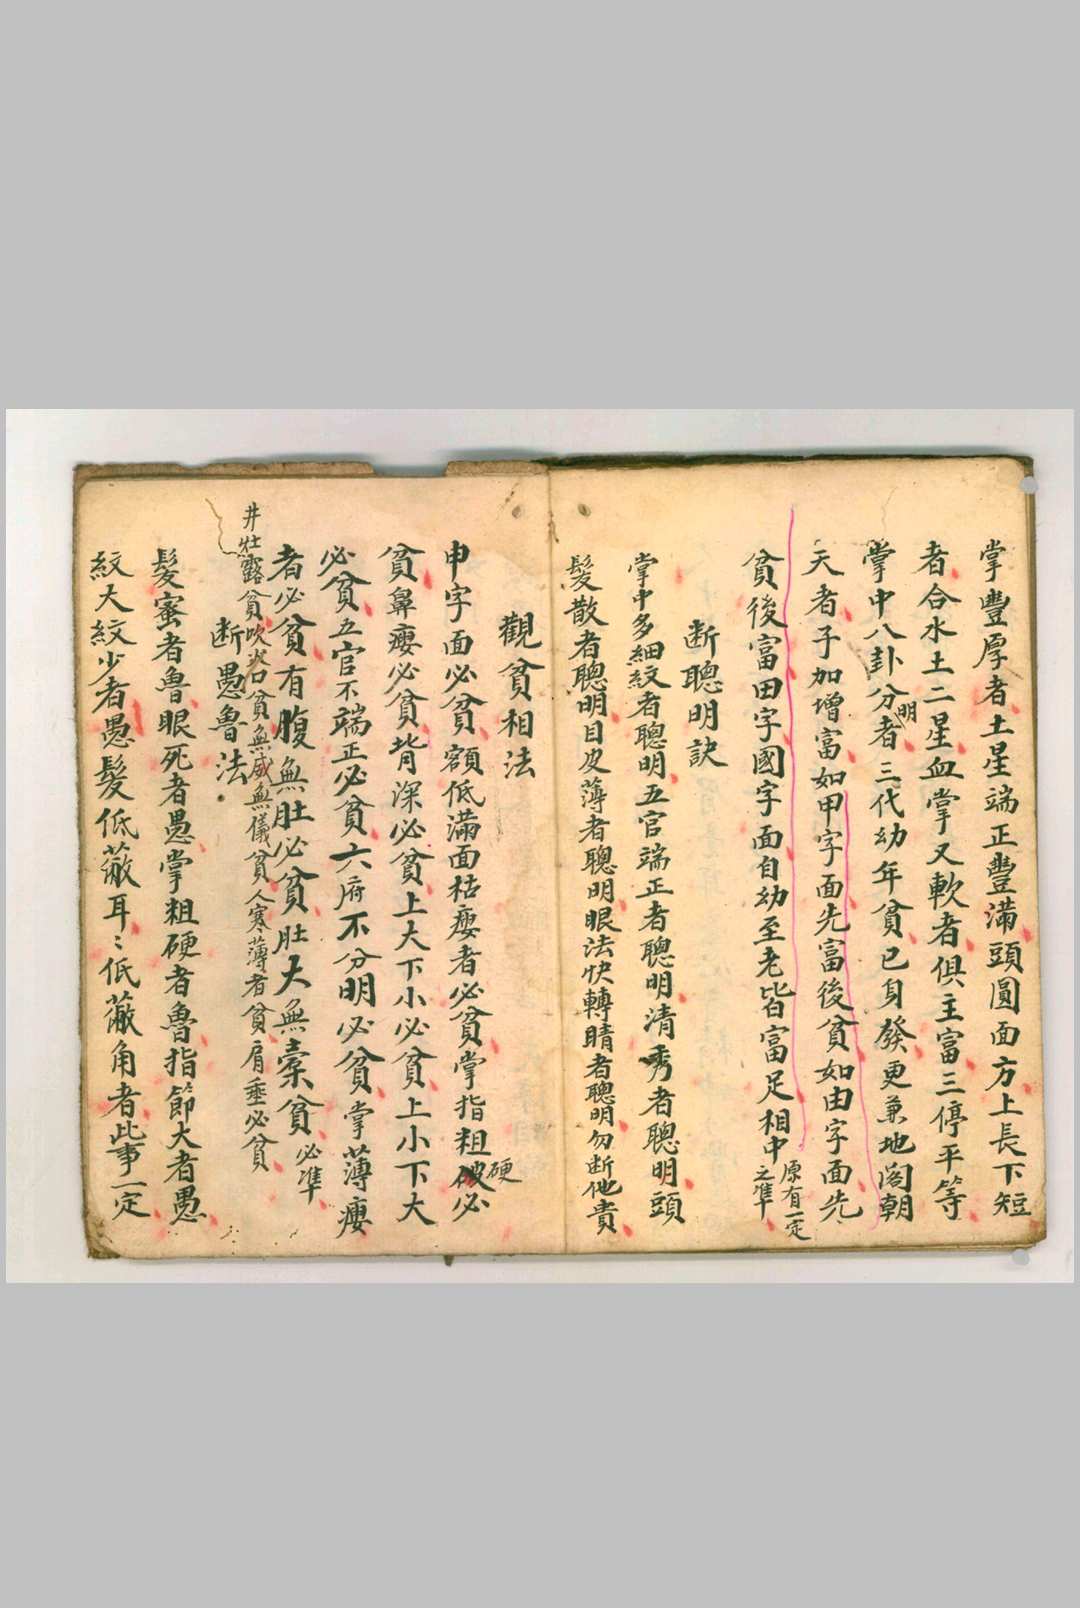 掌豐厚者土星端正豐滿頭圓面方上長下短
者合水土二星血掌又軟者俱主富三停平等
掌中八卦分明者三代幼年貧已身發更兼地阁朝
天者子加增富如甲字面先富後貧如由字面先
貧後富田字國字面自幼至老皆富足相中原有一定之準
断聰明訣
掌中多細紋者聰明五官端正者聰明清秀者聰明頭
髮散者聰明目皮薄者聰明眼法快轉睛者聰明勿断他貴
觀貧相法
申字面必貧額低滿面枯瘦者必貧掌指粗硬必
貧鼻瘦必貧背深必貧上大下小必貧上小下大
必貧五官不端正必貧六府不分明必貧掌薄瘦
者必貧有腹無肚必貧肚大無橐貧必準
井灶露貧吹火口貧無威無儀貧人寒薄者貧肩垂必貧
断愚魯法
髮蜜者魯眼死者愚掌粗硬者魯指節大者愚
紋大紋少者愚髮低蔽耳:低蔽角者此事一定